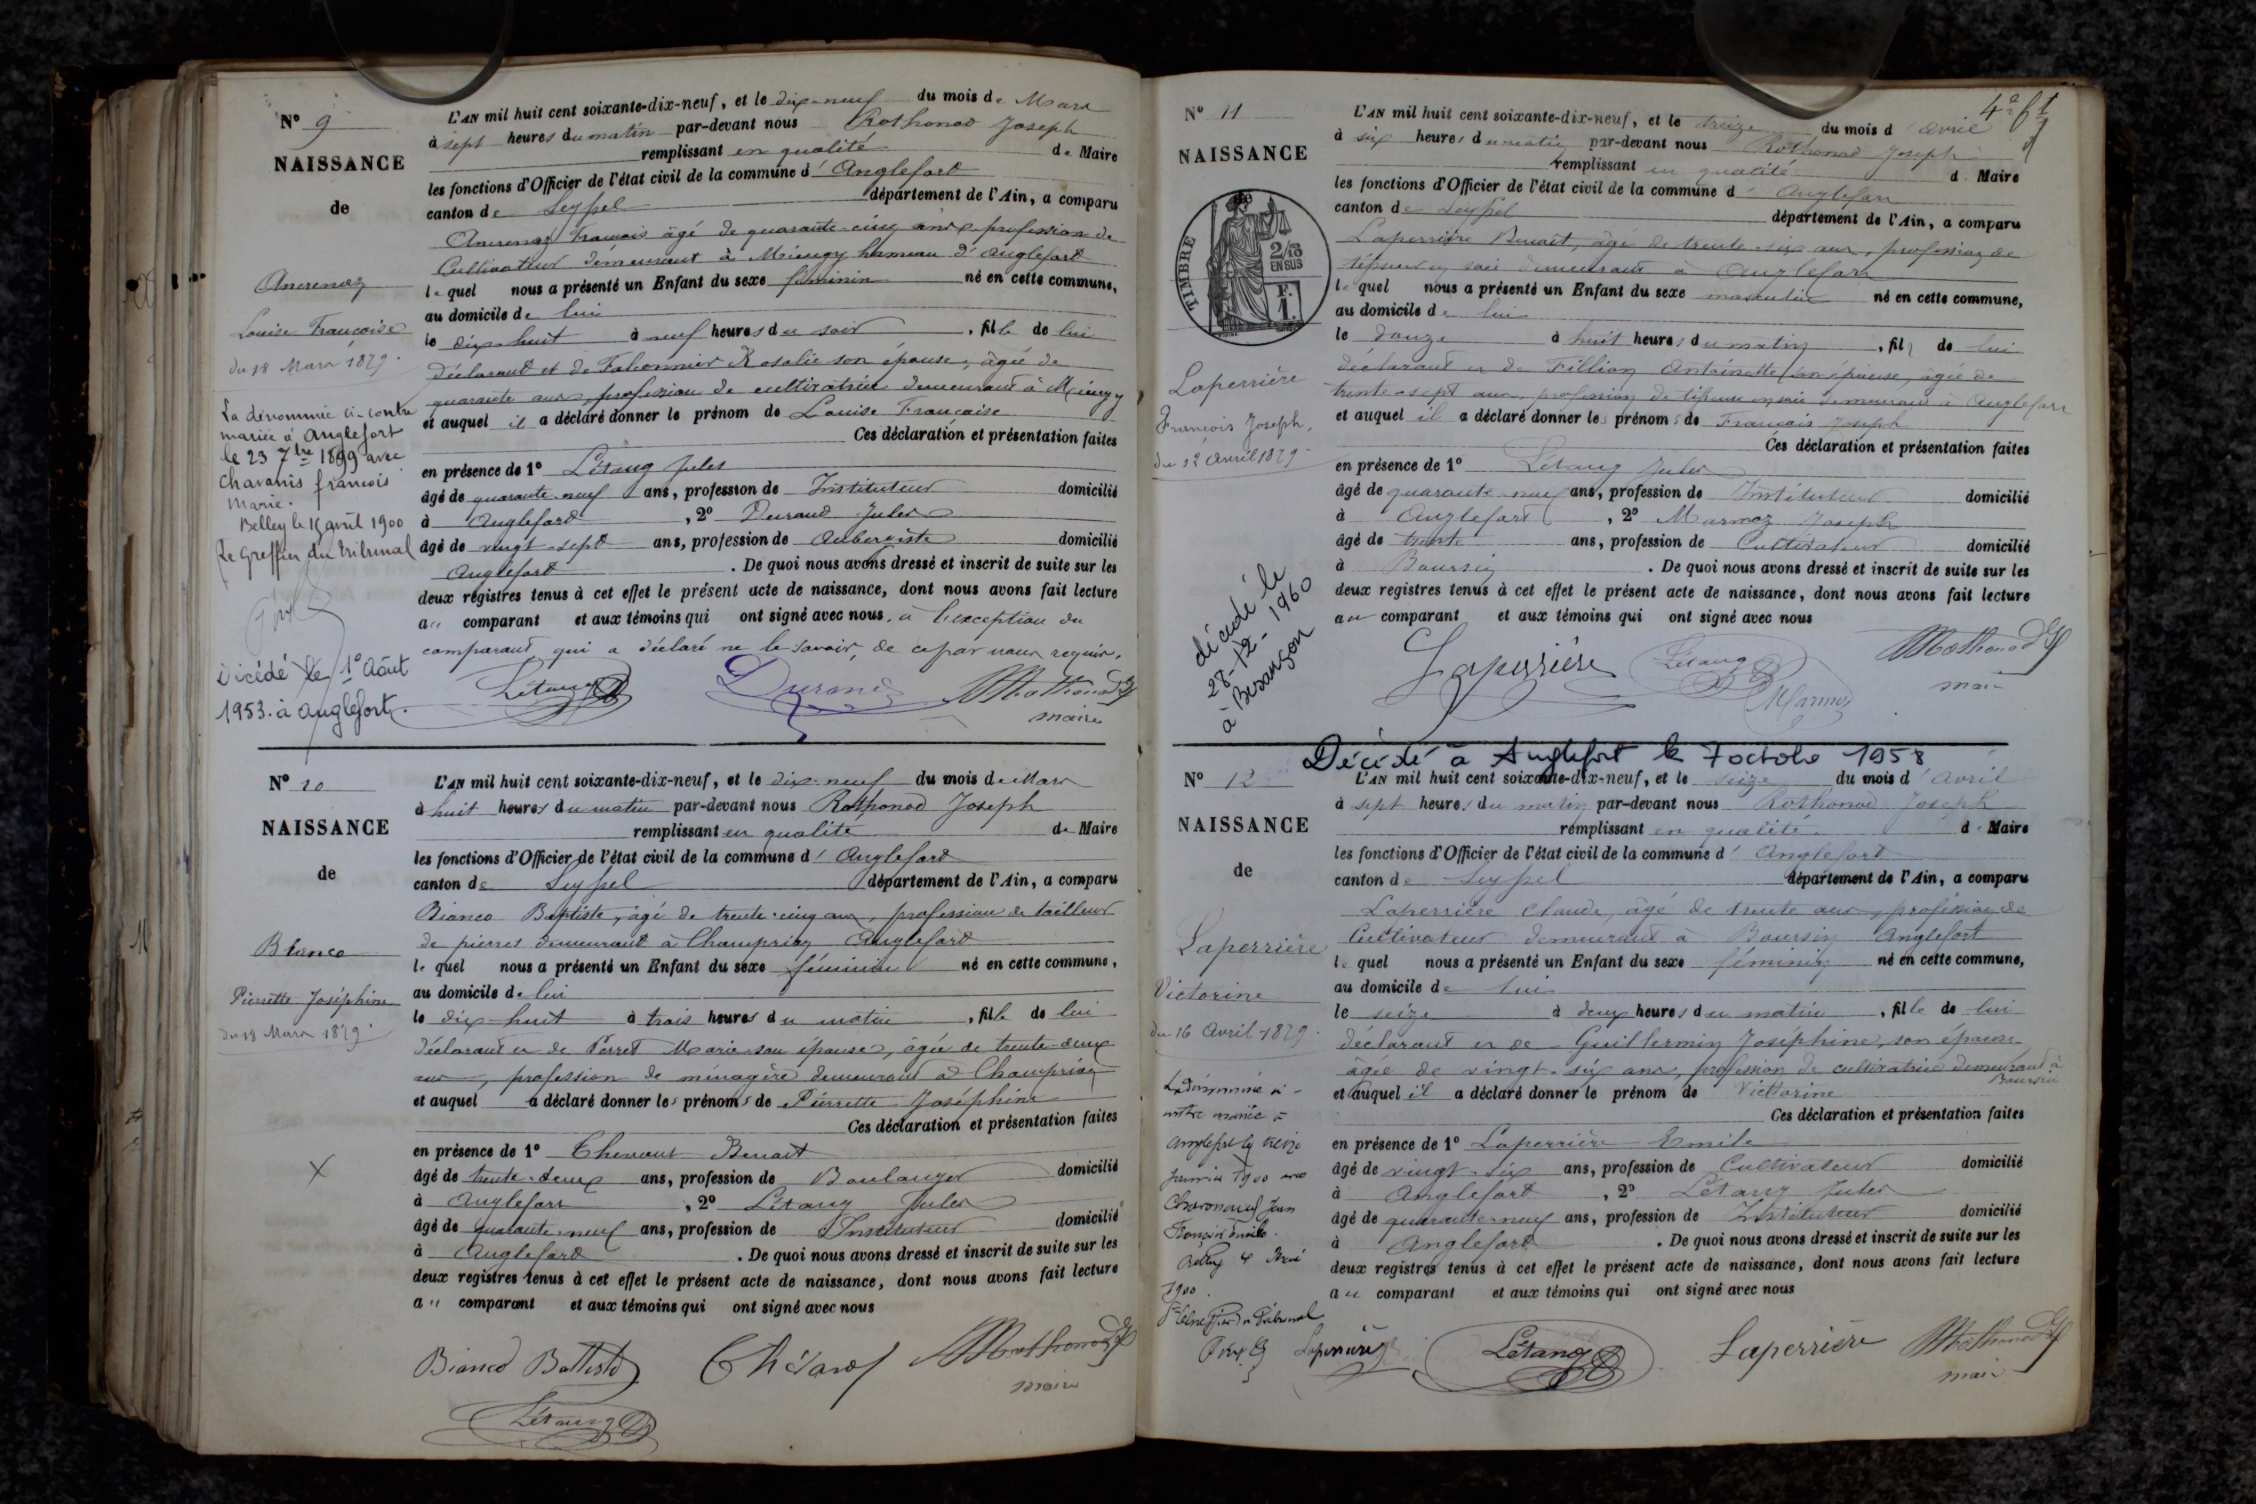 N° 9
NAISSANCE
de
Ancrenaz
Louise Françoise
du 18 Mars 1879.
La dénommée ci-contre
mariée à Anglefort
le 23 7bre 1899 avec
Chavanis françois
Marie.
Belley le 15 avril 1900
Le Greffier du tribunal
Décédé le 1° Août
1953. à Anglefort.
L'AN mil huit cent soixante-dix-neuf, et le dix-neuf du mois de Mars
à sept heures du matin par-devant nous Rothonod Joseph
remplissant en qualité de Maire
les fonctions d'Officier de l'état civil de la commune d' Anglefort
canton de Seyssel département de l'Ain, a comparu
Ancrenaz français âgé de quarante-cinq ans, profession de
Cultivateur demeurant à Mieugy hameau d'Anglefort
lequel nous a présenté un Enfant du sexe féminin né en cette commune,
au domicile de lui
le dix-huit à neuf heures du soir, fille de lui
déclarant et de Rosalie son épouse, âgée de
quarante ans, profession de cultivatrice demeurant à Mieugy
et auquel il a déclaré donner le prénom de Louise Françoise
Ces déclaration et présentation faites
en présence de 1° Létang Jules
âgé de quarante-neuf ans, profession de Instituteur domicilié
à Anglefort, 2° Durand Jules
âgé de vingt-sept ans, profession de Aubergiste domicilié
Anglefort. De quoi nous avons dressé et inscrit de suite sur les
deux registres tenus à cet effet le présent acte de naissance, dont nous avons fait lecture
au comparant et aux témoins qui ont signé avec nous, à l'exception du
comparant qui a déclaré ne le savoir, de ce par nous requis.
Létang Durand Rothonod
maire
N° 10
NAISSANCE
de
Bianco
Pierrette Joséphine
du 18 Mars 1879.
L'AN mil huit cent soixante-dix-neuf, et le dix-neuf du mois de Mars
à huit heures du matin par-devant nous Rothonod Joseph
remplissant en qualité de Maire
les fonctions d'Officier de l'état civil de la commune d' Anglefort
canton de Seyssel département de l'Ain, a comparu
Bianco Baptiste, âgé de trente-cinq ans, profession de tailleur
de pierres demeurant à Champriay Anglefort
lequel nous a présenté un Enfant du sexe féminin né en cette commune,
au domicile de lui
le dix-huit à trois heures du matin, fille de lui
déclarant et de Perret Marie son épouse, âgée de trente-deux
ans, profession de ménagère demeurant à Champriay
et auquel a déclaré donner les prénoms de Pierrette Joséphine
Ces déclaration et présentation faites
en présence de 1° Benoit
âgé de trente-deux ans, profession de Boulanger domicilié
à Anglefort, 2° Létang Jules
âgé de quarante-neuf ans, profession de Instituteur domicilié
à Anglefort. De quoi nous avons dressé et inscrit de suite sur les
deux registres tenus à cet effet le présent acte de naissance, dont nous avons fait lecture
au comparant et aux témoins qui ont signé avec nous
Bianco Battista Rothonod
maire
Létang
4e ft
N° 11
NAISSANCE
TIMBRE
2/10
EN SUS
F.
1.
Laperrière
François Joseph,
du 12 Avril 1879.
décédé le
28-12-1960
à Besançon
L'AN mil huit cent soixante-dix-neuf, et le treize du mois d'avril
à six heures du matin par-devant nous Rothonod Joseph
remplissant en qualité d Maire
les fonctions d'Officier de l'état civil de la commune d' Anglefort
canton de Seyssel département de l'Ain, a comparu
Laperrière Benoit, âgé de trente-six ans, profession de
tisseur en soie demeurant à Anglefort
lequel nous a présenté un Enfant du sexe masculin né en cette commune,
au domicile de lui
le douze à huit heures du matin, fils de lui
déclarant et de Fillion Antoinette son épouse, âgée de
trente-sept ans, profession de tisseuse en soie demeurant à Anglefort
et auquel il a déclaré donner les prénoms de François Joseph
Ces déclaration et présentation faites
en présence de 1° Létang Jules
âgé de quarante-neuf ans, profession de Instituteur domicilié
à Anglefort, 2° Marmoz Joseph
âgé de trente ans, profession de Cultivateur domicilié
à Boursin. De quoi nous avons dressé et inscrit de suite sur les
deux registres tenus à cet effet le présent acte de naissance, dont nous avons fait lecture
au comparant et aux témoins qui ont signé avec nous
Laperrière Létang Rothonod
Marmoz maire
Décédé à Anglefort le 7 octobre 1958
N° 12
NAISSANCE
de
Laperrière
Victorine
du 16 Avril 1879.
La dénommée ci-
contre mariée à
Anglefort le treize
Janvier 1900 avec
Jean
François
Belley
1900.
L'AN mil huit cent soixante-dix-neuf, et le seize du mois d'avril
à sept heures du matin par-devant nous Rothonod Joseph
remplissant en qualité de Maire
les fonctions d'Officier de l'état civil de la commune d' Anglefort
canton de Seyssel département de l'Ain, a comparu
Laperrière Claude, âgé de trente ans, profession de
Cultivateur demeurant à Boursin Anglefort
lequel nous a présenté un Enfant du sexe féminin né en cette commune,
au domicile de lui
le seize à deux heures du matin, fille de lui
déclarant et de Guillermin Joséphine, son épouse
âgée de vingt-six ans, profession de cultivatrice demeurant à
Boursin
et auquel il a déclaré donner le prénom de Victorine
Ces déclaration et présentation faites
en présence de 1° Laperrière Emile
âgé de vingt-six ans, profession de Cultivateur domicilié
à Anglefort, 2° Létang Jules
âgé de quarante-neuf ans, profession de Instituteur domicilié
à Anglefort. De quoi nous avons dressé et inscrit de suite sur les
deux registres tenus à cet effet le présent acte de naissance, dont nous avons fait lecture
au comparant et aux témoins qui ont signé avec nous
Laperrière Létang Laperrière Rothonod
maire